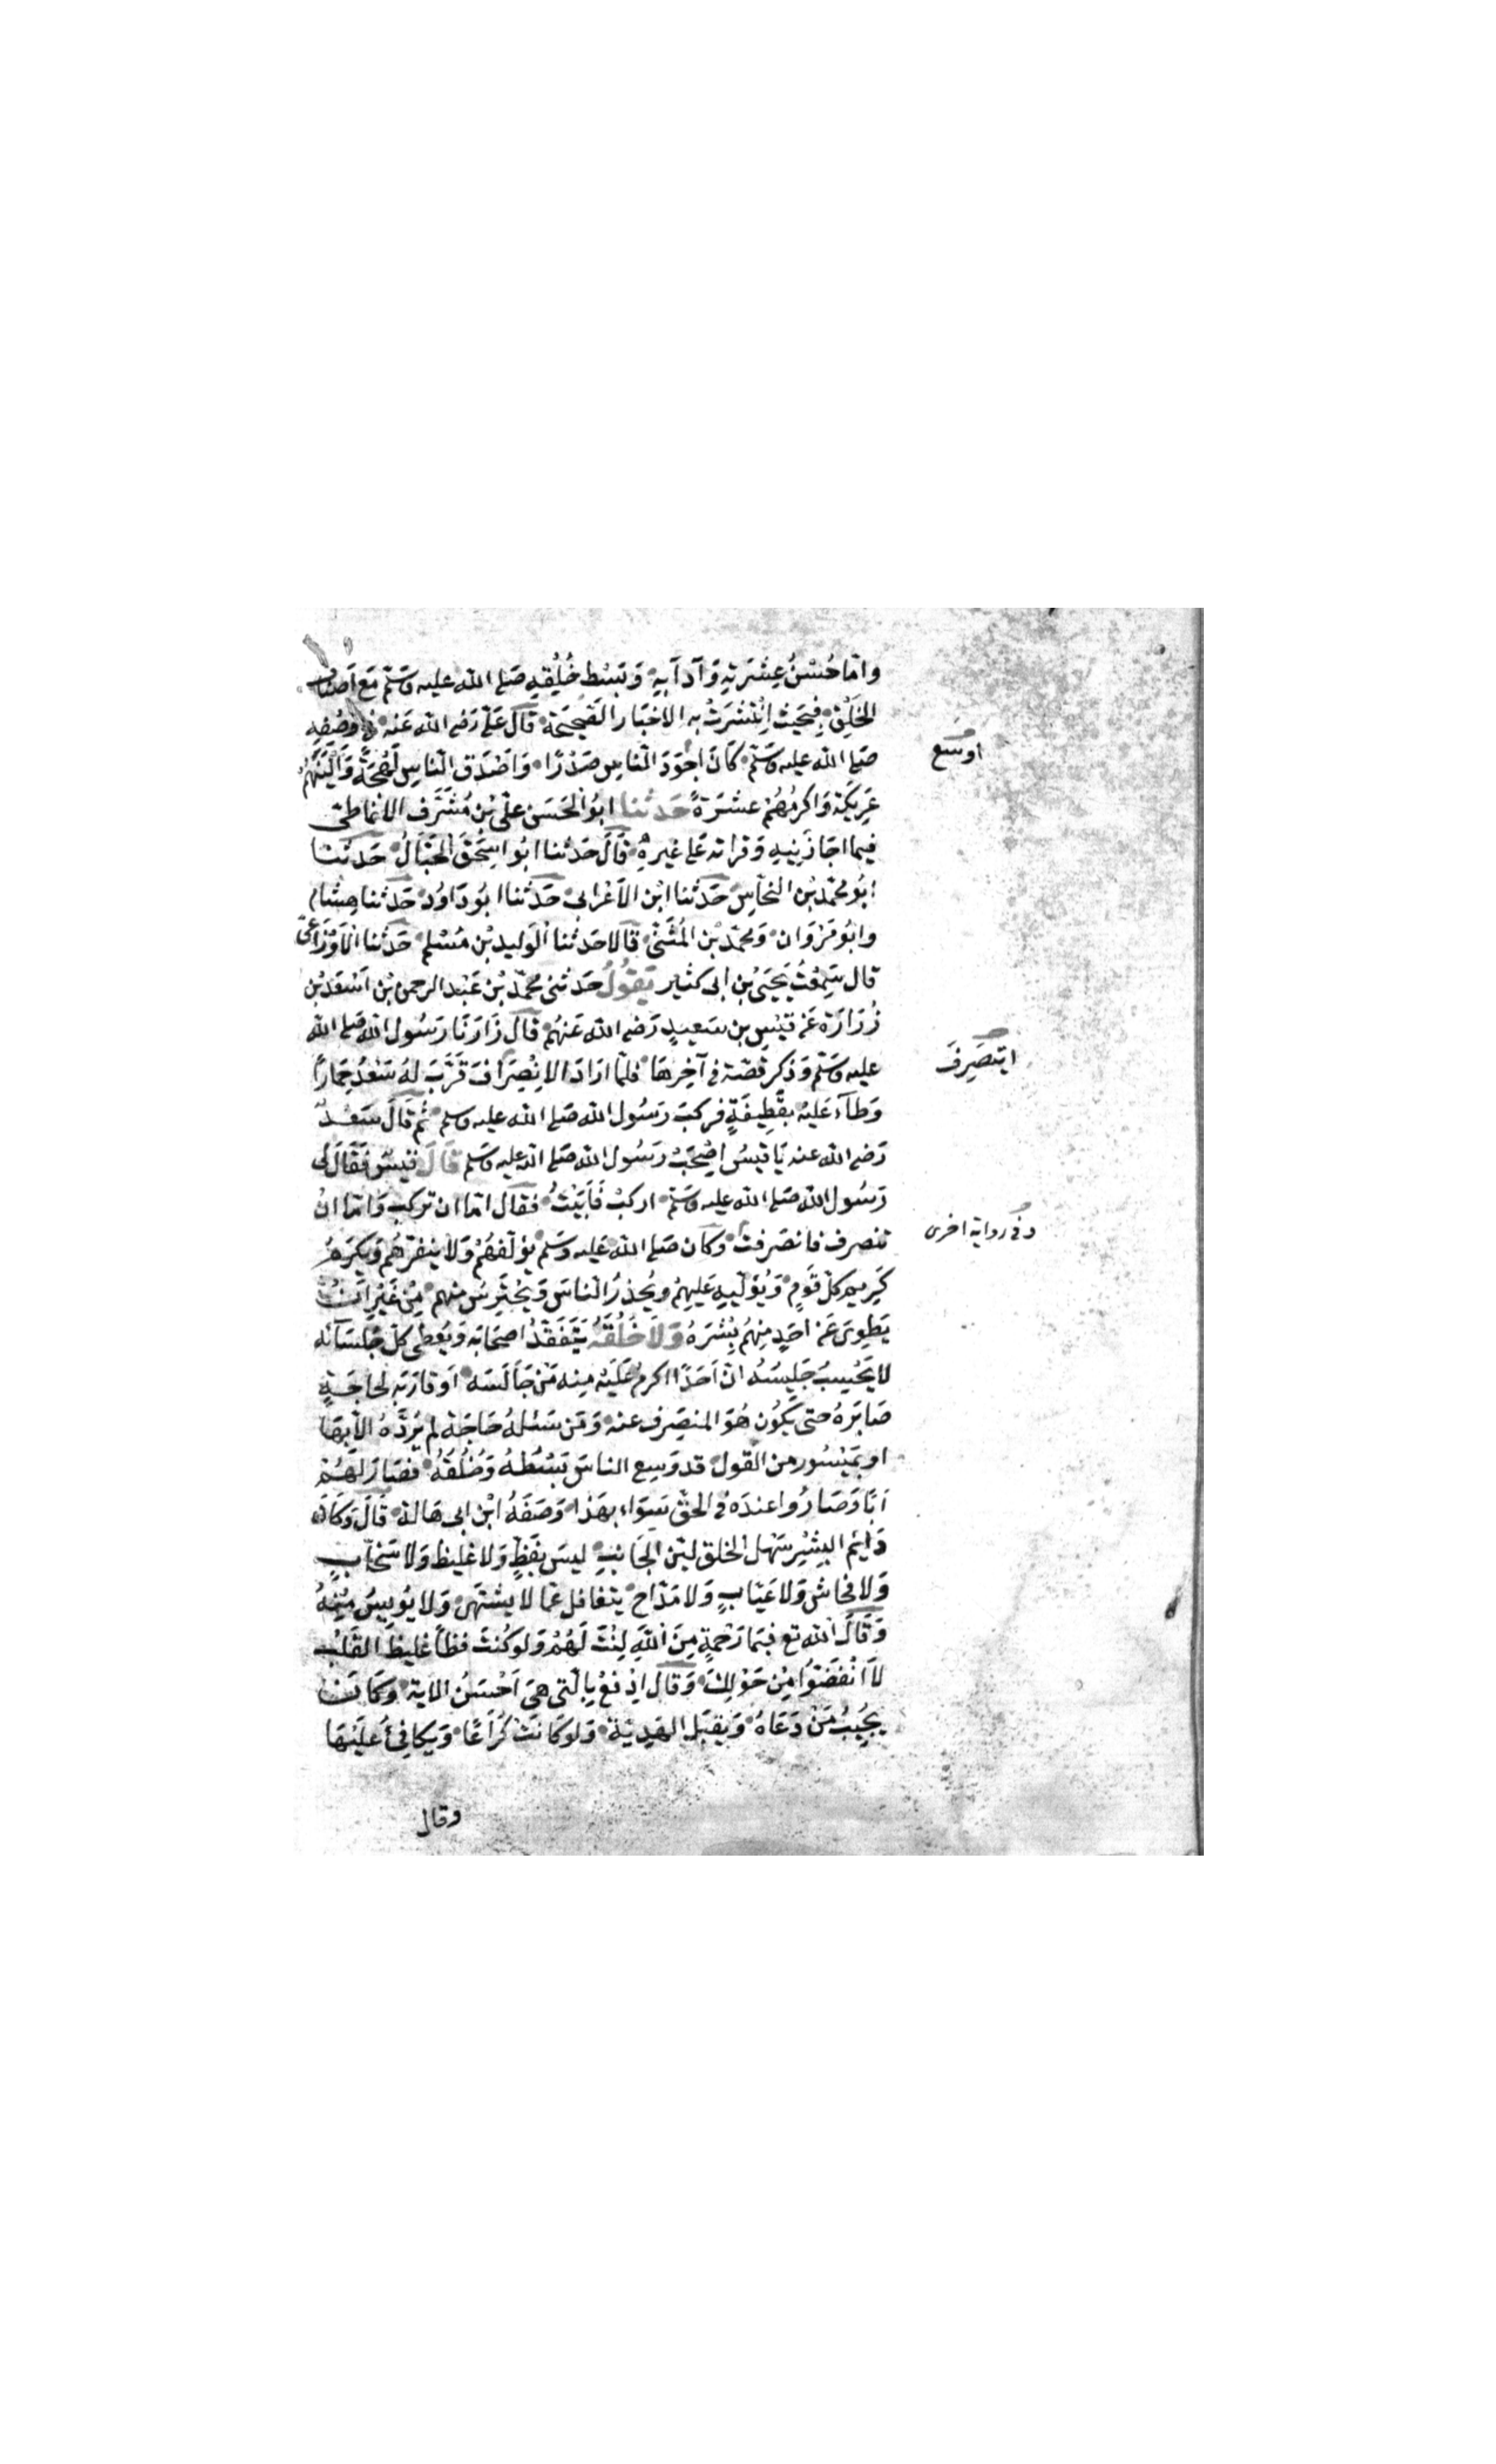 واما حُسْنُ عِشْرَتِهِ وَآدَابِهِ وَبَسْط خُلُقِهِ صَلى الله عليه وسَلم مَع اَصناف
الخَلْقِ فبِحَيث اِنْتَشَرَتْ به الاخبَار الصَحيحَة قَال عَلى رَضى الله عَنه فى وصْفِهِ
صَلى الله عليه وسَلم كَانَ اجْوَدَ النَاس صَدْرًا وَاَصْدَق النَاس لَهْجَةً وَاَليَنَهُمْ
عَرِيكَة وَاكرمُهُمْ عشْرَةً حَدثنا ابُو الحَسَن عَلىّ بْن مُشَرَّف الانماطىّ
فيما اجَازَنِيهِ وَقراته عَلى غيرهِ قَال حَدثنا ابُو اسْحٰقَ الحَبَالُ حَدثنا
ابُو محمّد بْن النحاسِ حَدثنا ابْن الاَعْرابى حَدثنا ابُو دَاوُد حَدثنا هِشام
وابُو مَرْوَان وَمحمّد بْن المُثَنّى قالا حَدثنا الوَليد بْن مُسْلم حَدثنا الاَوْزاعىّ
قال سَمِعْتُ يَحيَى بْن ابى كثير يَقُولُ حَدثنى محمّد بْن عَبْد الرحمن بْن اَسْعَد بْن
زُرَارَة عَن قيْسِ بن سَعيدٍ رَضى الله عَنهُم قَال زَارَنَا رسُول الله صَلى الله
عليه وسَلم وَذكر قصّة فى آخِرهَا فلمّا ارَادَ الاِنْصِرَاف قَرَّبَ لهُ سَعْد حِمَارًا
وَطأ عَليْه بقَطِيفَةٍ فركبَ رَسُول الله صَلى الله عليه وسلم ثم قَالَ سَعْدٌ
رَضى الله عنه يَا قيْسُ اصْحَبْ رسُول الله صَلى الله عليه وسَلم قَالَ قيسٌ فَقَال لى
رَسُول الله صَلى الله عليه وسَلم اركبْ فَاَبَيْتُ فقال امّا ان تركب وَامّا انْ
تنصرف فانصَرفتُ وَكان صَلى الله عَليه وسَلم يؤلفهُمْ وَلا ينفرهُم وَيكرمُ
كَرِيم كلّ قَومٍ وَيُوَلّيهِ عَليهِمْ ويُحذرُ النَاسَ وَيَحْترِسُ منهم مِنْ غَيْرِ اَنْ
يَطوِىَ عَن اَحَدٍ مِنهُم بِشْرَهُ وَلاَ خُلُقَهُ يَتَفَقَّدُ اصحَابَه وَيُعْطى كلّ جلسَائه
لا يَحْسِبُ جَليسُهُ ان اَحَدًا اكرمُ عَلَيْهِ مِنه مَنْ جَالَسَه اَوْ قارَبَه لحَاجَةٍ
صَابَرَهُ حتى يَكُون هُوَ المنصَرِف عنه وَمَن سَئلهُ حَاجَة لم يَرُدَّهُ الاّ بهَا
او بمَيْسُور من القَول قد وَسِع الناسَ بَسْطهُ وَخُلُقهُ فصَارَ لَهُمْ
اَبًا وَصَارُوا عندَهُ فى الحَقّ سَوَاء بهَذَا وَصَفَهُ ابْن ابى هَالة قَالَ وَكَانَ
دَايمَ البِشْر سَهْل الخلق ليّن الجَانبِ ليسَ بفَظٍ وَلا غليظ وَلا سَخّابٍ
وَلا فحّاش وَلا عَيَّابٍ وَلا مَدّاح يتغافل عَمّا لا يشتهى وَلا يُويسُ مِنْهُ
وَقَالَ الله تع فبمَا رَحْمَةٍ مِنَ اللهِ لِنْتَ لَهُمْ وَلو كُنتَ فظّا غليظَ القَلْب
لاَ انْفَضّوا مِنْ حَوْلِكَ وَقالَ ادْفَعْ بِالّتى هىَ اَحْسَنُ الاية وَكَانَ
يجيبُ مَنْ دَعَاهُ وَيَقبَل الهَديّة وَلوْ كَانَتْ كُرَاعًا وَيكافئُ عَليْهَا
اوسَع
لتنصَرِفَ
وفى رواية اخرى
وقال